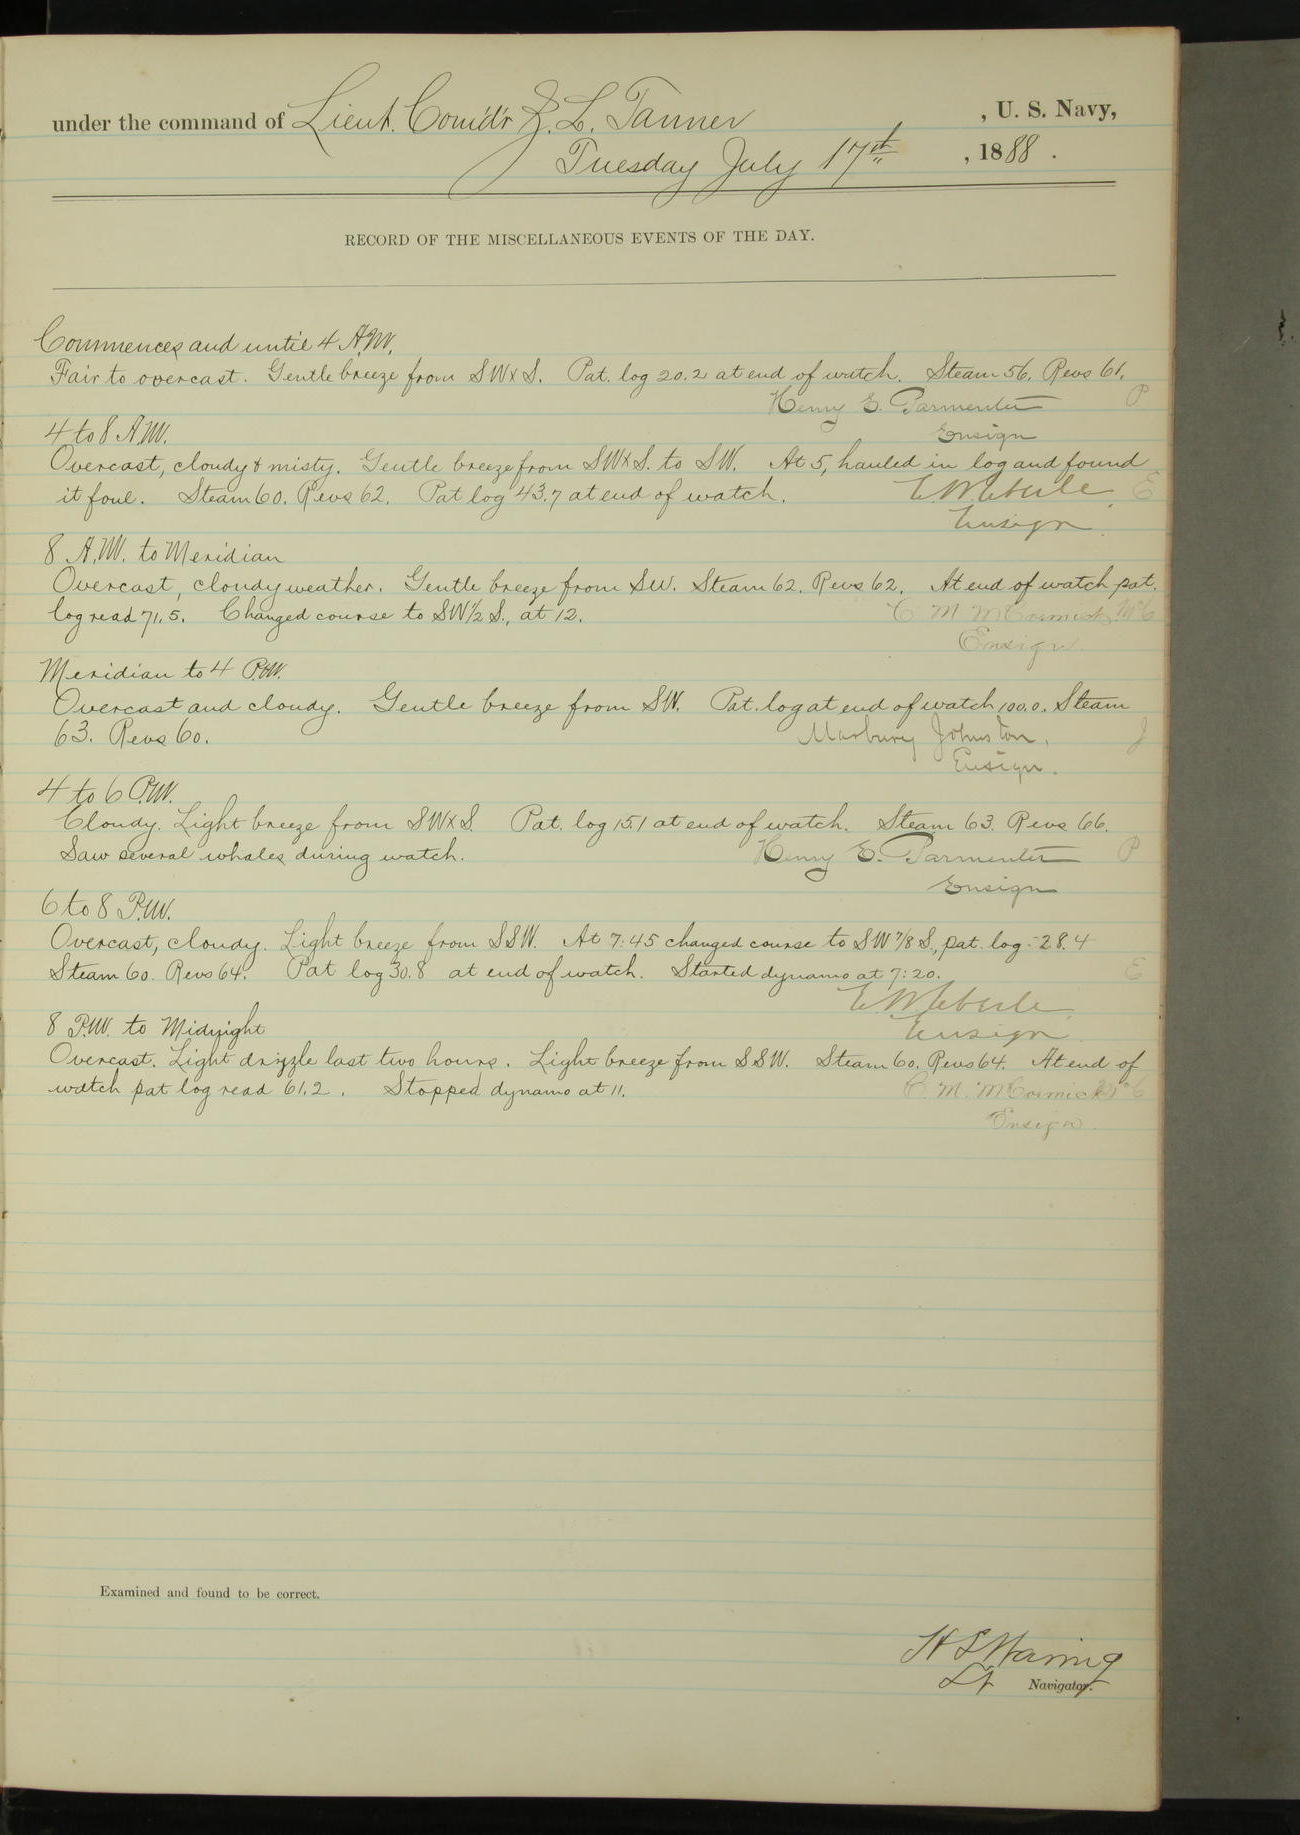 under the command of Lieut. Com'd'r Z. L. Tanner, U. S. Navy,
Tuesday July 17th, 1888.
RECORD OF THE MISCELLANEOUS EVENTS OF THE DAY.
Commences and until 4 A.M.
Fair to overcast. Gentle breeze from SWxS. Pat. log 20.2 at end of watch. Steam 56, Revs 61.
Henry E. Parmenter P
Ensign
4 to 8 A.M.
Overcast, cloudy & misty. Gentle breeze from SWxS. to SW. At 5, hauled in log and found
it foul. Steam 60. Revs 62. Pat log 43.7 at end of watch. E. W. Eberle. E
Ensign.
8 A.M. to Meridian
Overcast, cloudy weather. Gentle breeze from SW. Steam 62. Revs 62. At end of watch pat.
log read 71.5. Changed course to SW 1/2 S., at 12. C M McCormick McC
Ensign.
Meridian to 4 P.M.
Overcast and cloudy. Gentle breeze from SW. Pat. log at end of watch 100.0. Steam
63. Revs 60. Marbury Johnston. J
Ensign.
4 to 6 P.M.
Cloudy. Light breeze from SWxS. Pat. log 15.1 at end of watch. Steam 63. Revs 66.
Saw several whales during watch. Henry E. Parmenter P
Ensign
6 to 8 P.M.
Overcast, cloudy. Light breeze from SSW. At 7:45 changed course to SW 7/8 S., pat. log - 28.4
Steam 60. Revs 64. Pat log 30.8 at end of watch. Started dynamo at 7:20. E
E. W. Eberle.
Ensign
8 P.M. to Midnight
Overcast. Light drizzle last two hours. Light breeze from SSW. Steam 60. Revs 64. At end of
watch pat log read 61.2. Stopped dynamo at 11. C. M. McCormick McC
Ensign.
Examined and found to be correct.
H S Waring
Lt Navigator.